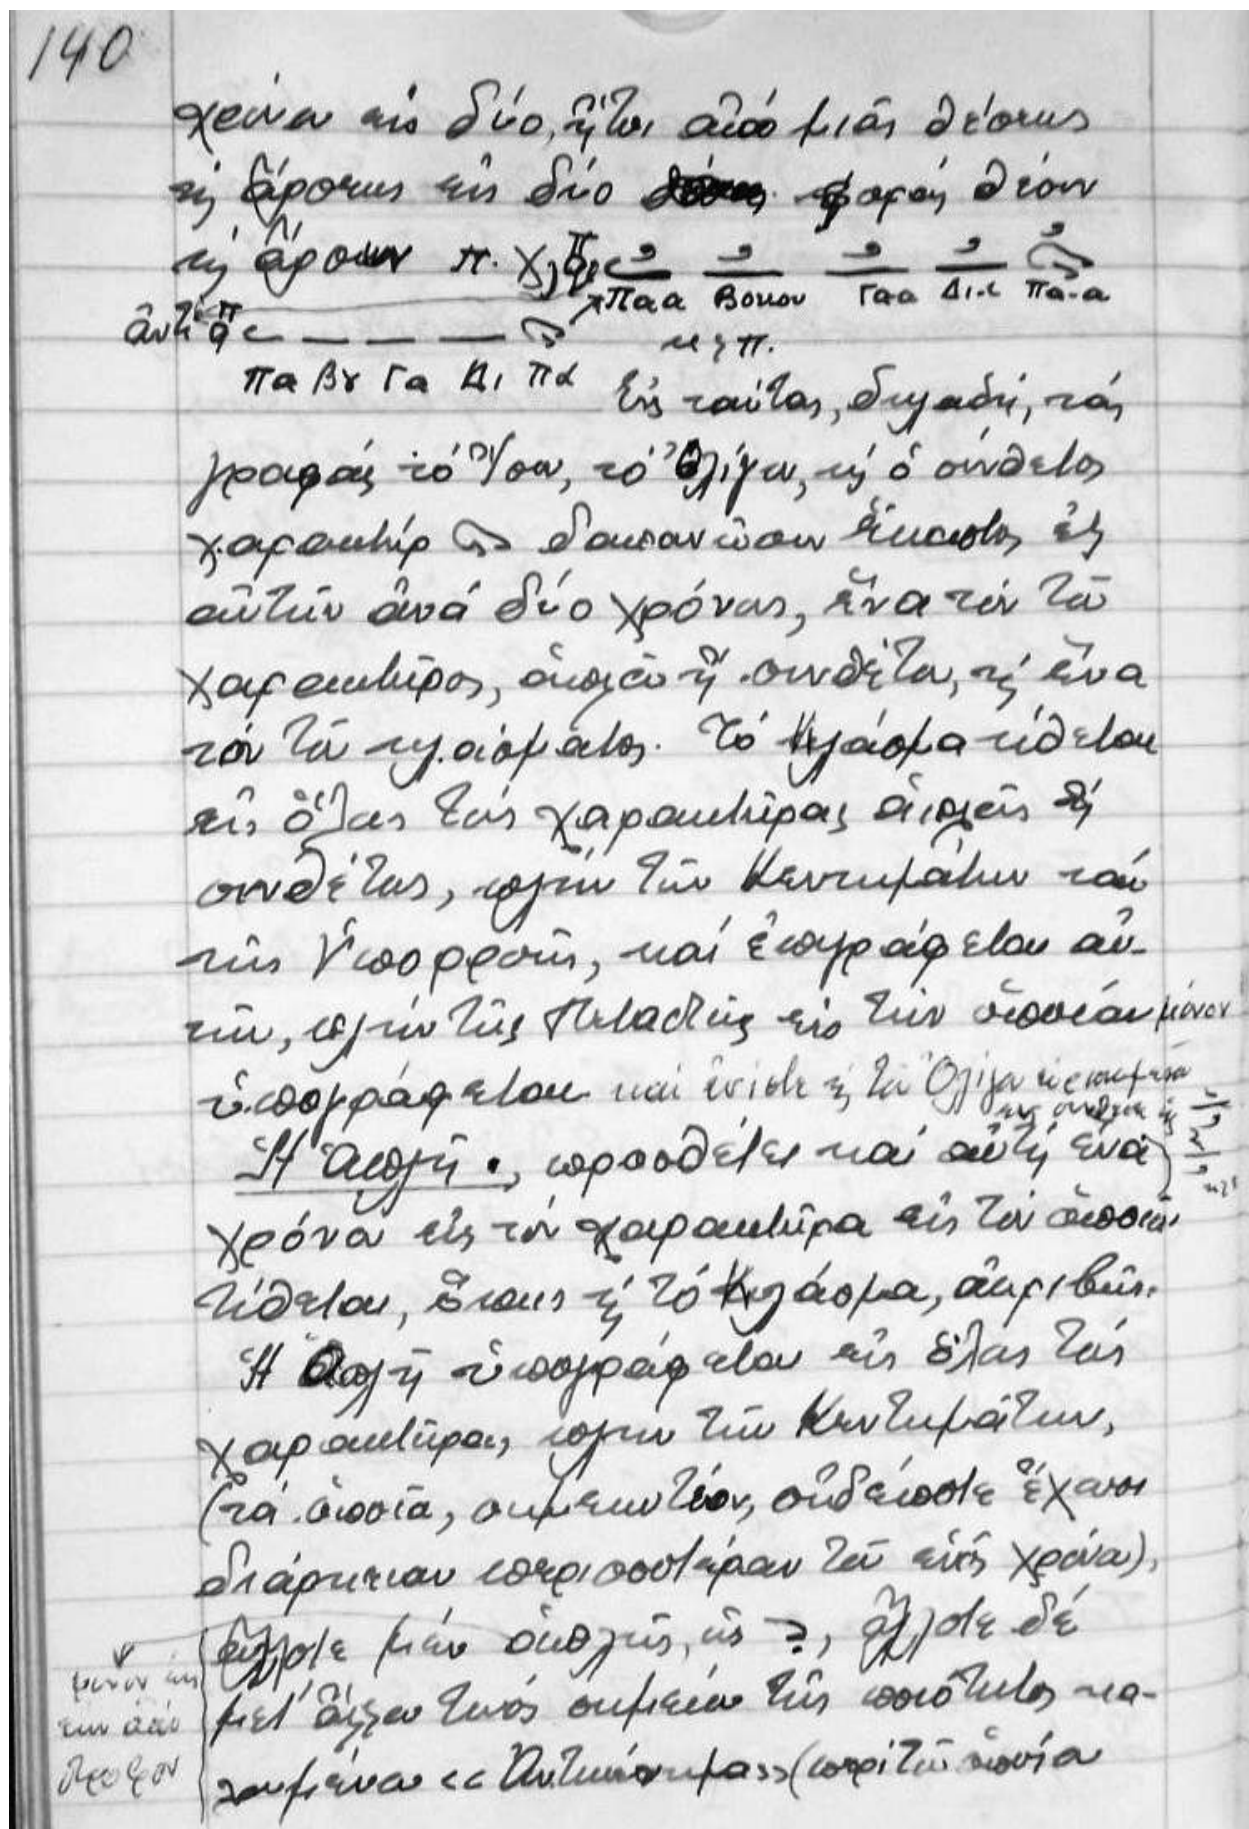 140
χρόνου εἰς δύο, ἤτοι ἀπό μιᾶς θέσεως
καί ἄρσεως εἰς δύο φοράς θέσιν
καί ἄρσιν π.χ.
Παα Βουου Γαα Δι-ι Πα-α
ἀντί
κλπ.
Πα Βου Γα Δι Πα
Εἰς ταύτας, δηλαδή, τάς
γραφάς τό Ἴσον, τό Ὀλίγον, καί ὁ σύνθετος
χαρακτήρ δαπανῶσιν ἕκαστος ἐξ
αὐτῶν ἀνά δύο χρόνους, ἕνα τόν τοῦ
χαρακτῆρος, ἁπλοῦ ἤ συνθέτου, καί ἕνα
τόν τοῦ κλάσματος. Τό Κλάσμα τίθεται
εἰς ὅλους τούς χαρακτῆρας ἁπλούς καί
συνθέτους, πλήν τῶν Κεντημάτων καί
τῆς Ὑπορροῆς, καί ἐπιγράφεται αὐ-
τῶν, πλήν τῆς Πεταστῆς εἰς τήν ὁποίαν μόνον
ὑπογράφεται καί ἐνίοτε καί τοῦ Ὀλίγου
Ἡ Ἁπλῆ ., προσθέτει καί αὐτή ἕνα
χρόνον εἰς τόν χαρακτῆρα εἰς τόν ὁποῖον
τίθεται, ὅπως καί τό Κλάσμα, ἀκριβῶς.
Ἡ Ἁπλῆ ὑπογράφεται εἰς ὅλους τούς
χαρακτῆρας, πλήν τῶν Κεντημάτων,
(τά ὁποῖα, σημειωτέον, οὐδέποτε ἔχουσι
διάρκειαν περισσοτέραν τοῦ ἑνός χρόνου),
ἄλλοτε μέν ἁπλῶς, ὡς , ἄλλοτε δέ
μετ' ἄλλου τινός σημείου τῆς ποιότητος κα-
λουμένου «Ἀντικένωμα» (περί τοῦ ὁποίου